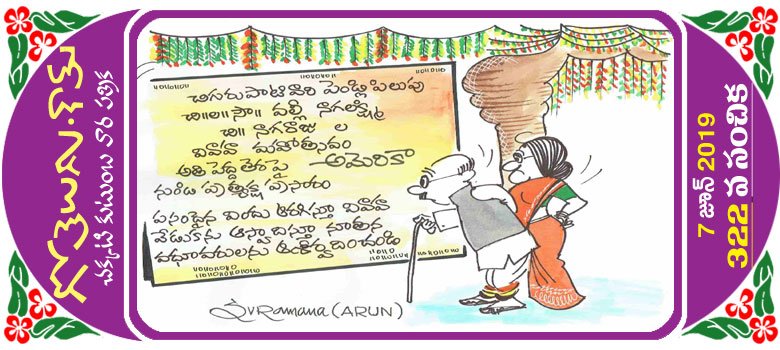 గోతెలుగు.కామ్
చక్కటి కుటుంబ వార పత్రిక
చిగురుపాటి వారి పెండ్లి పిలుపు
చి||ల||సౌ|| వల్లీ నాగలక్ష్మి
చి|| నాగరాజు ల
వివాహ మహోత్సవం
అతి పెద్ద తెరపై అమెరికా
నుండి ప్రత్యక్ష ప్రసారం
పసందైన విందు ఆరగిస్తూ వివాహ
వేడుకను ఆస్వాదిస్తూ నూతన
వధూవరులను ఆశీర్వదించండి
SVRamana (ARUN)
7 జూన్ 2019
322 వ సంచిక